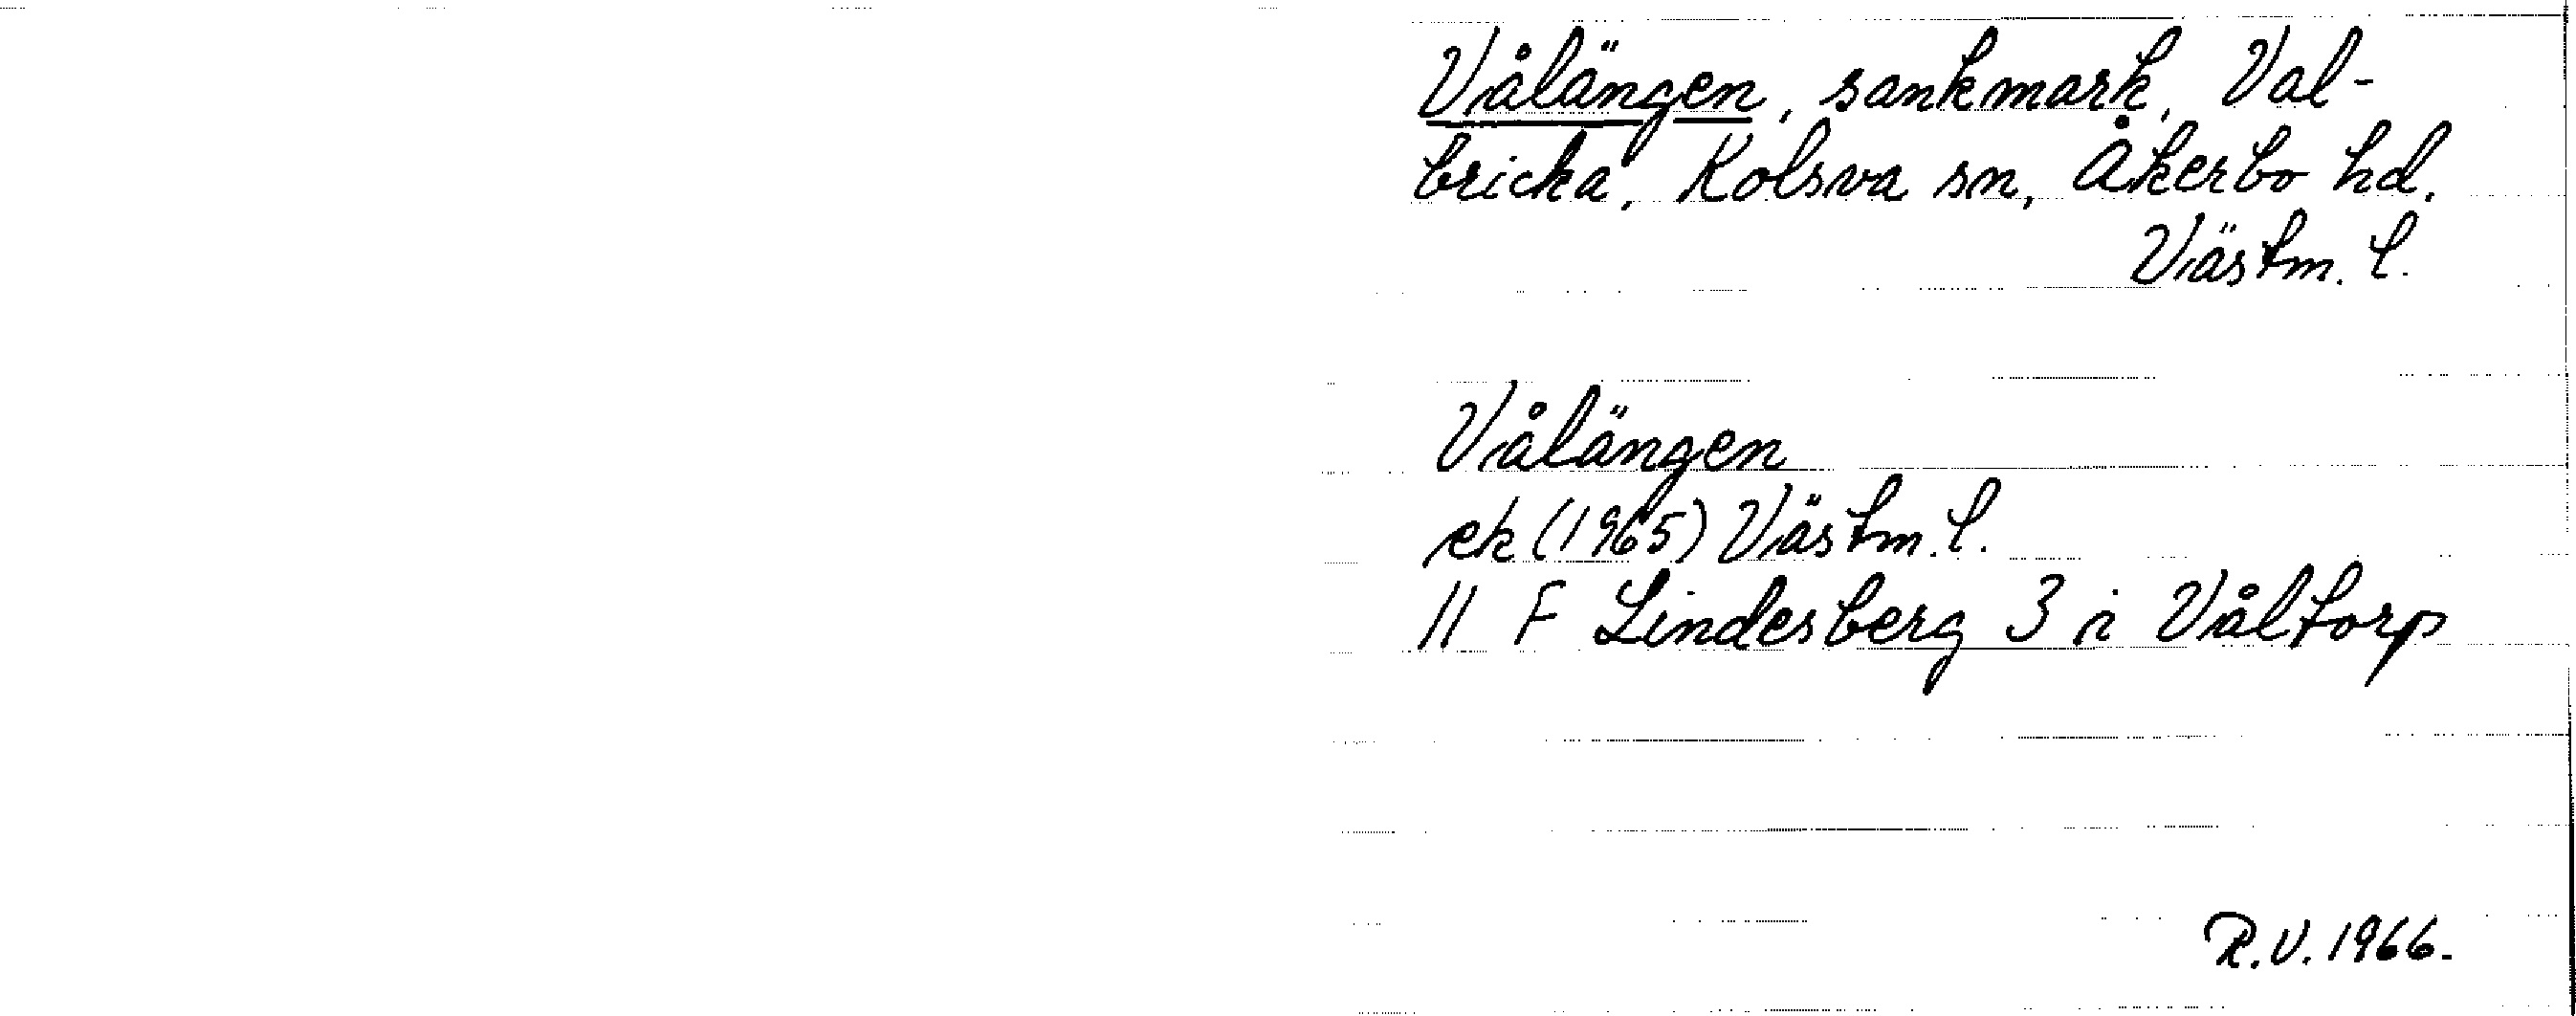 Vålängen, sankmark, Val-
bricka, Kolsva sn, Åkerbo hd,
Västm. l.
Vålängen
ek (1965) Västm. l.
11 F Lindesberg 3 i Våltorp
R.V. 1966.